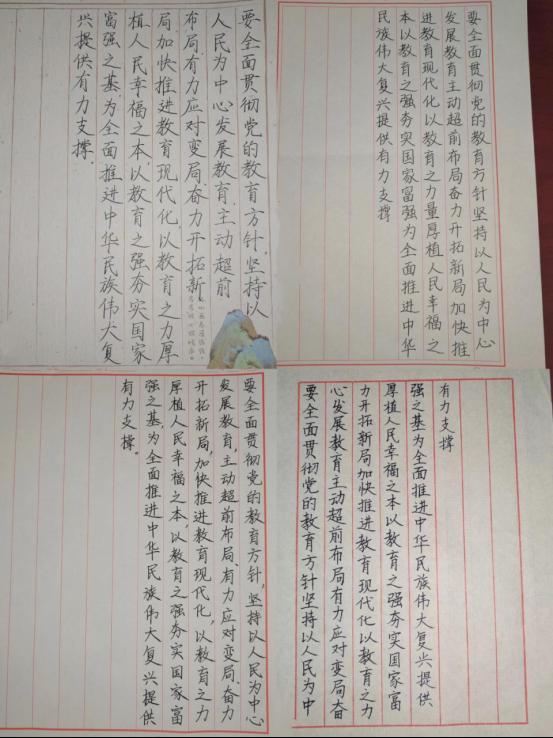 要全面贯彻党的教育方针.坚持以
人民为中心发展教育.主动超前
布局.有力应对变局.奋力开拓新
局加快推进教育现代化以教育之力厚
植人民幸福之本.以教育之强夯实国家
富强之基.为全面推进中华民族伟大复
兴提供有力支撑.
要全面贯彻党的教育方针坚持以人民为中心
发展教育主动超前布局奋力开拓新局加快推
进教育现代化以教育之力量厚植人民幸福之
本以教育之强夯实国家富强为全面推进中华
民族伟大复兴提供有力支撑
要全面贯彻党的教育方针,坚持以人民为中心
发展教育,主动超前布局、有力应对变局、奋力
开拓新局,加快推进教育现代化,以教育之力
厚植人民幸福之本,以教育之强夯实国家富
强之基,为全面推进中华民族伟大复兴提供
有力支撑。
要全面贯彻党的教育方针坚持以人民为中
心发展教育主动超前布局有力应对变局奋
力开拓新局加快推进教育现代化以教育之力
厚植人民幸福之本以教育之强夯实国家富
强之基为全面推进中华民族伟大复兴提供
有力支撑